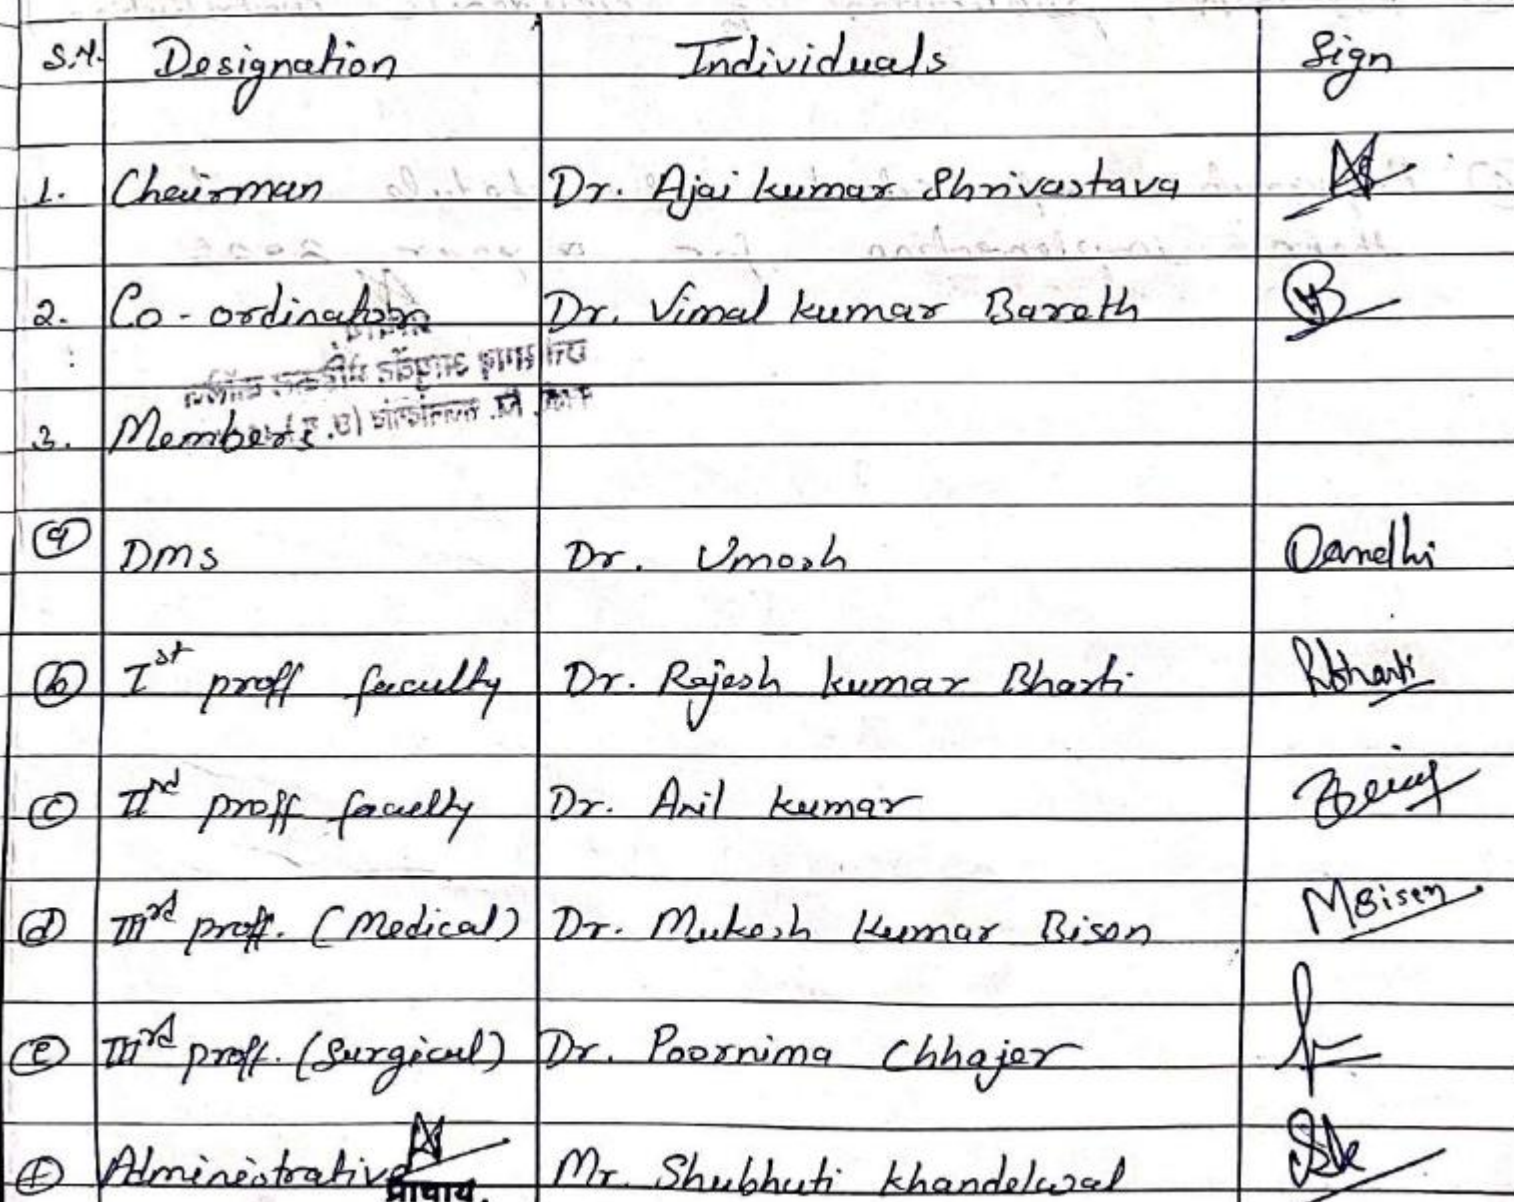 S.N. Designation Individuals Sign
1. Chairman Dr. Ajai kumar Shrivastava
2. Co-ordinator Dr. Vimal kumar Barath
3. Members
(a) DMS Dr. Umesh Gandhi
(b) Ist proff faculty Dr. Rajesh kumar Bharti Rbharti
(c) IInd proff faculty Dr. Anil kumar
(d) IIIrd proff. (Medical) Dr. Mukesh Kumar Bisen MBisen
(e) IIIrd proff. (Surgical) Dr. Poornima Chhajer
(f) Administrative Mr. Shubhuti Khandelwal
प्राचार्य